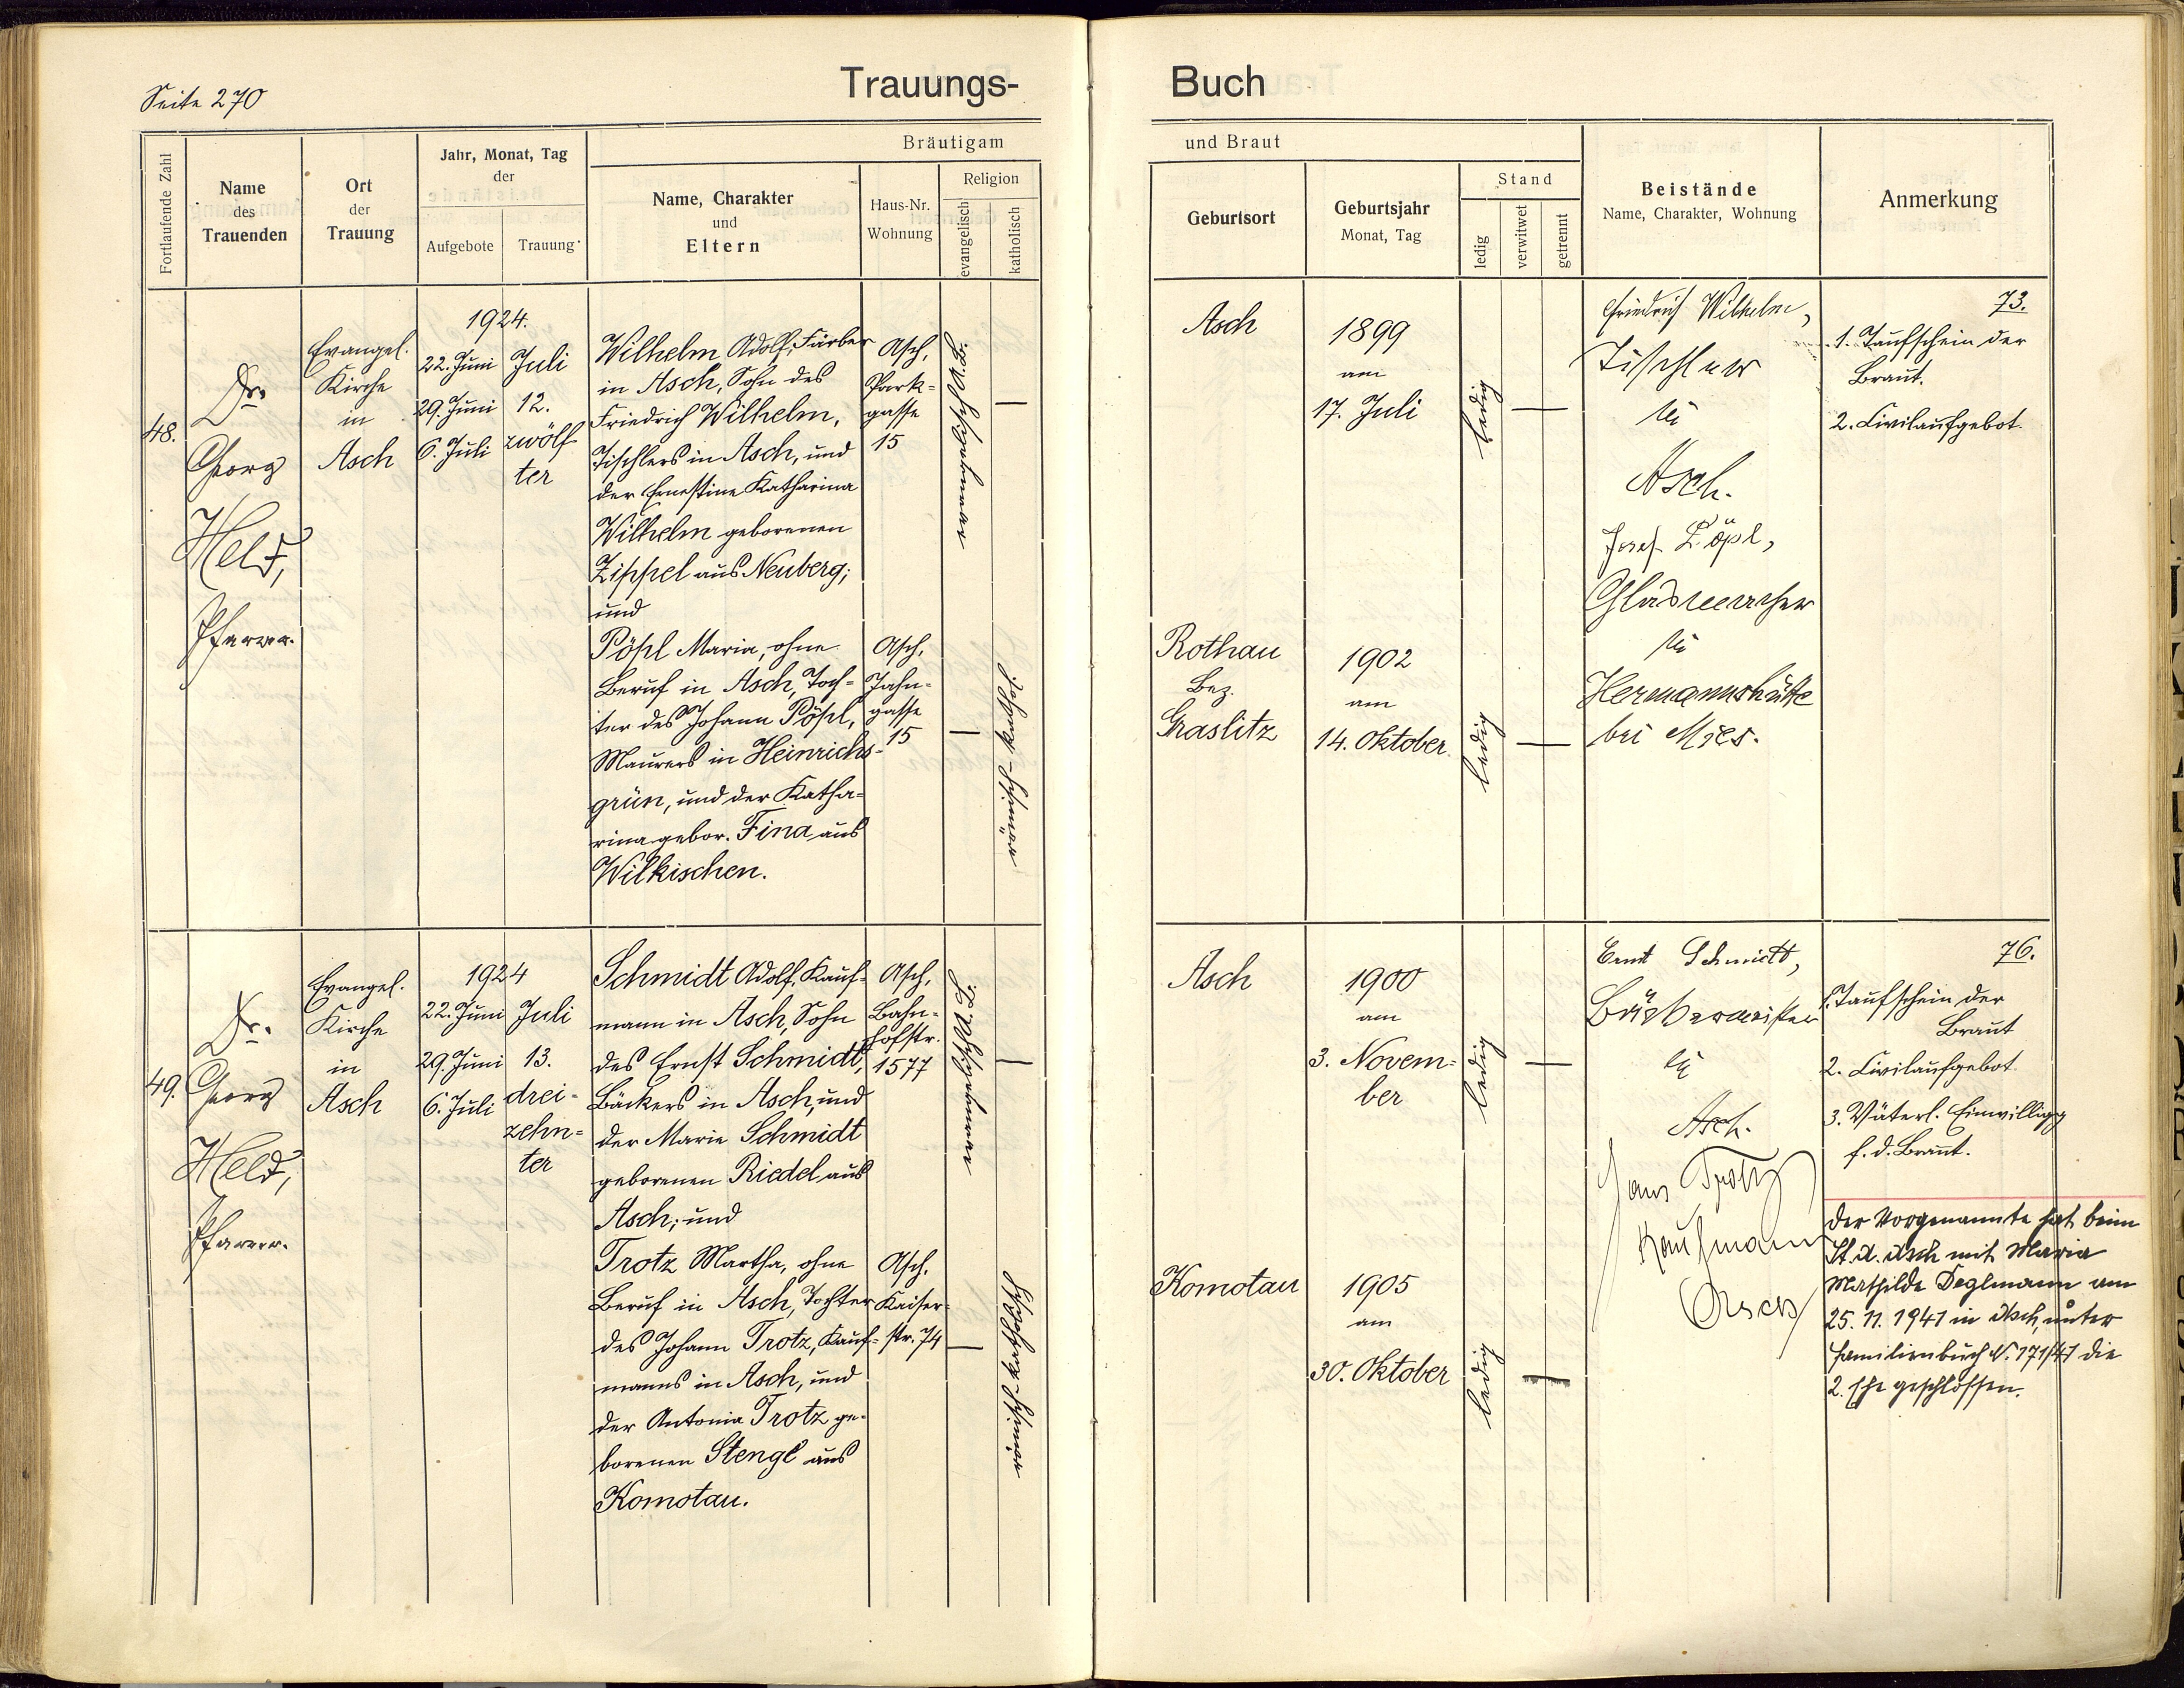 Seite 270
Trauungs-
Buch
Fortlaufende Zahl
Name
des
Trauenden
Ort
der
Trauung
Jahr, Monat, Tag
der
Aufgebote
Trauung
Bräutigam
Name, Charakter
und
Eltern
Haus-Nr.
Wohnung
Religion
evangelisch
katholisch
und Braut
Geburtsort
Geburtsjahr
Monat, Tag
Stand
ledig
verwitwet
getrennt
Beistände
Name, Charakter, Wohnung
Anmerkung
48.
Dr.
Georg
Held,
Pfarrer.
Evangel.
Kirche
in
Asch
1924.
22. Juni
29. Juni
6. Juli
Juli
12.
zwölf
ter
Wilhelm Adolf, Färber
in Asch, Sohn des
Friedrich Wilhelm,
Tischlers in Asch, und
der Ernestine Katharina
Wilhelm geborenen
Zippel aus Neuberg;
und
Pöpl Maria, ohne
Beruf in Asch, Toch-
ter des Johann Pöpl,
Maurers in Heinrichs-
grün, und der Katha-
rina gebor. Fina aus
Wilkischen.
Asch,
Park-
gasse
15
Asch,
Jahn-
gasse
15
evangelisch A.B.
—
—
römisch-kathol.
Asch
1899
am
17. Juli
ledig
—
Rothau
Bez.
Graslitz
1902
am
14. Oktober
ledig
—
Friedrich Wilhelm,
Tischler
in
Asch.
Josef Pöpl,
Glasmacher
in
Hermannshütte
bei Mies.
73.
1. Taufschein der
Braut.
2. Civilaufgebot.
49.
Dr.
Georg
Held,
Pfarrer.
Evangel.
Kirche
in
Asch
1924
22. Juni
29. Juni
6. Juli
Juli
13.
drei-
zehn-
ter
Schmidt Adolf, Kauf-
mann in Asch, Sohn
des Ernst Schmidt,
Bäckers in Asch, und
der Marie Schmidt
geborenen Riedel aus
Asch; und
Trotz Martha, ohne
Beruf in Asch, Tochter
des Johann Trotz, Kauf-
manns in Asch, und
der Antonia Trotz ge-
borenen Stengl aus
Komotau.
Asch,
Bahn-
hofstr.
1577
Asch,
Kaiser-
str. 74
evangelisch A.B.
—
—
römisch katholisch
Asch
1900
am
3. Novem-
ber
ledig
—
Komotau
1905
am
30. Oktober
ledig
—
Ernst Schmidt,
Bäckermeister
in
Asch.
Hans Trotz
Kaufmann
Asch
76.
1. Taufschein der
Braut
2. Civilaufgebot.
3. Väterl. Einwilligg
f. d. Braut.
Der Vorgenannte hat beim
St. A. Asch mit Maria
Mathilde Deglmann am
25. 11. 1941 in Asch, unter
Familienbuch N. 171/41 die
2. Ehe geschlossen.